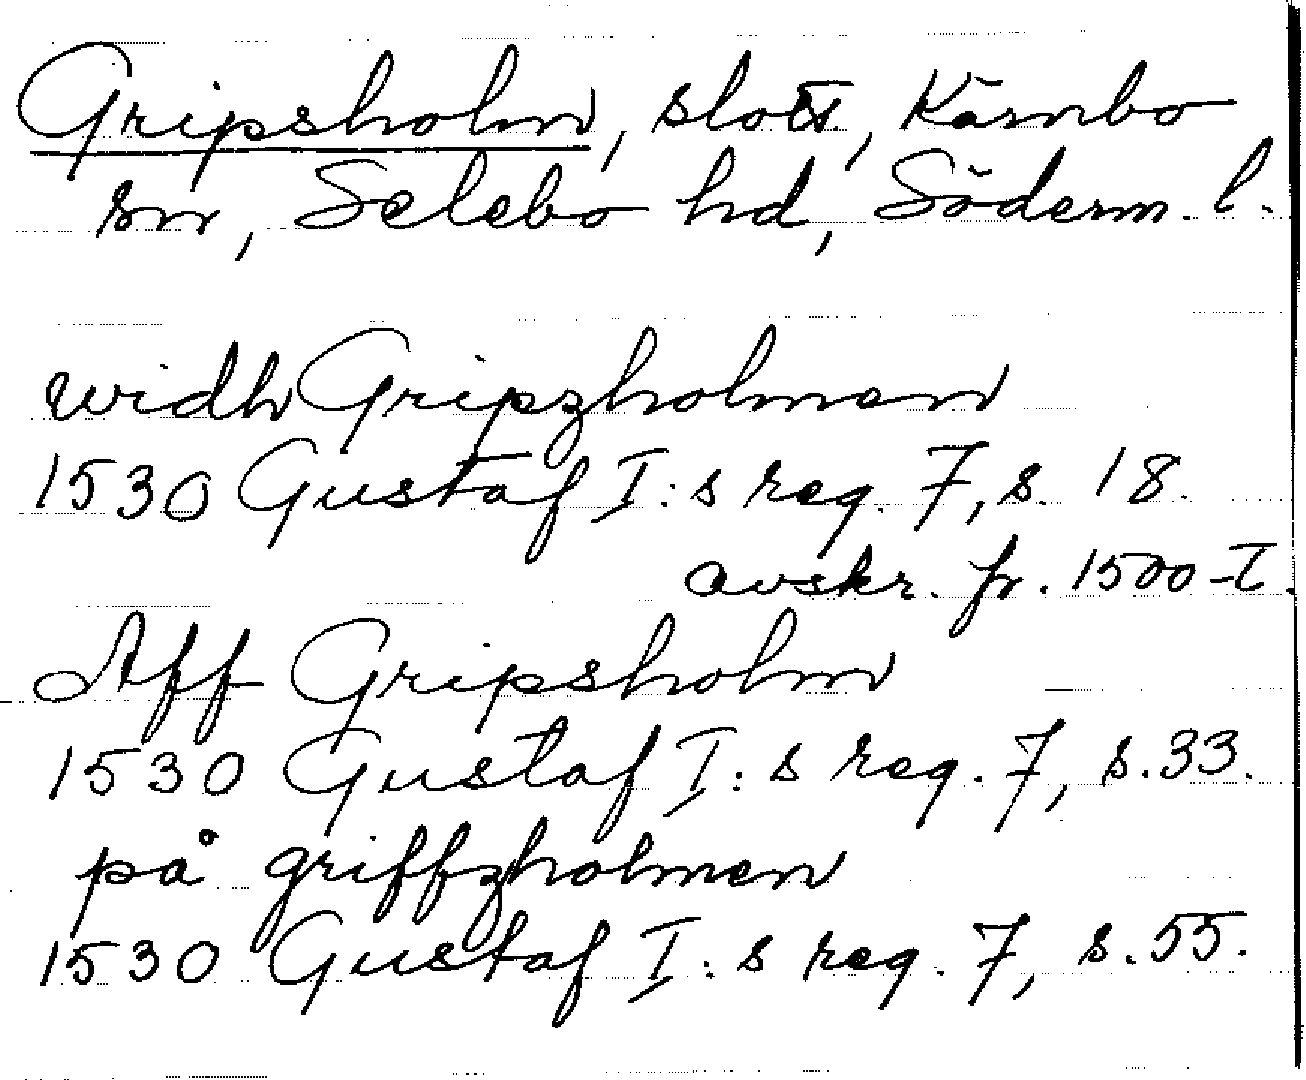 Gripsholm, slott, Kärnbo
sn, Selebo hd, Söderm. l.
widh Gripzholmen
1530 Gustaf I:s reg. 7, s. 18.
avskr. fr. 1500-t.
Aff Gripsholm
1530 Gustaf I:s reg. 7, s. 33.
på griffzholmen
1530 Gustaf I:s reg. 7, s. 55.